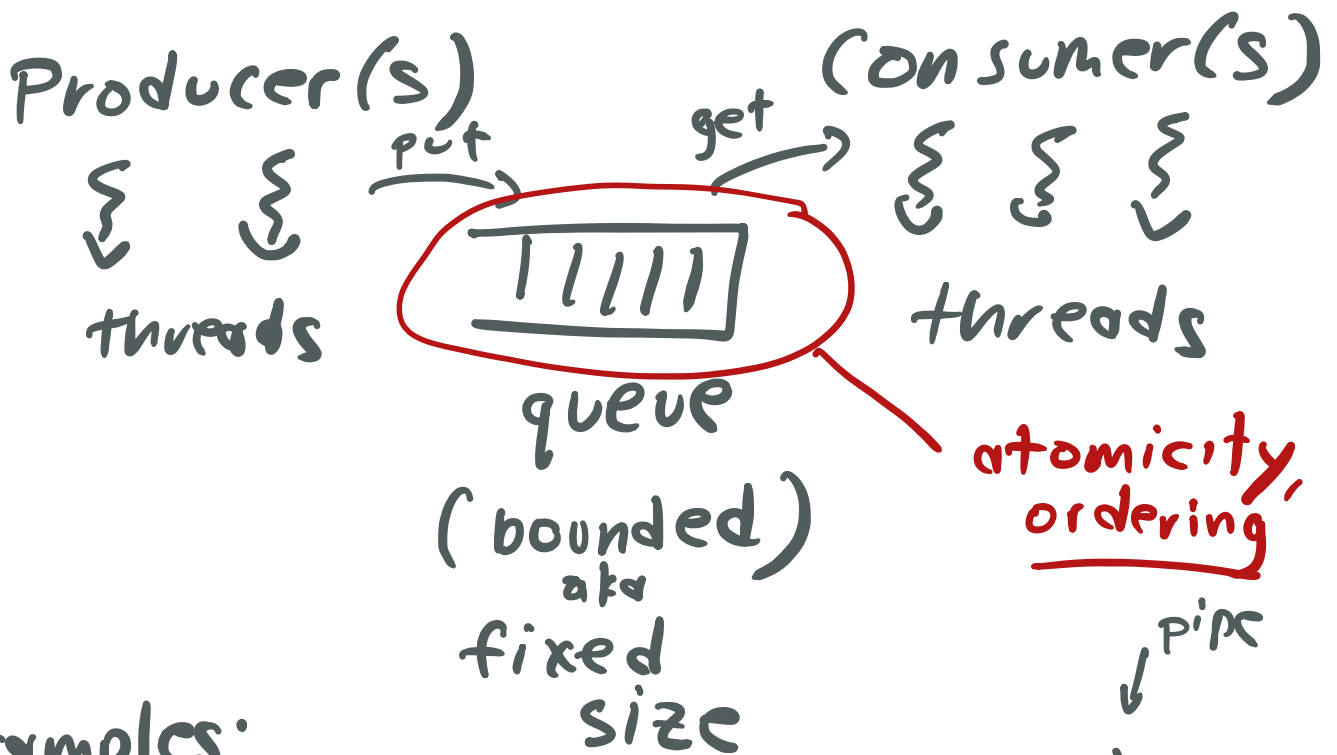 Producer(s)
put
get
Consumer(s)
threads
threads
queue
(bounded)
aka
fixed
size
atomicity,
ordering
pipe